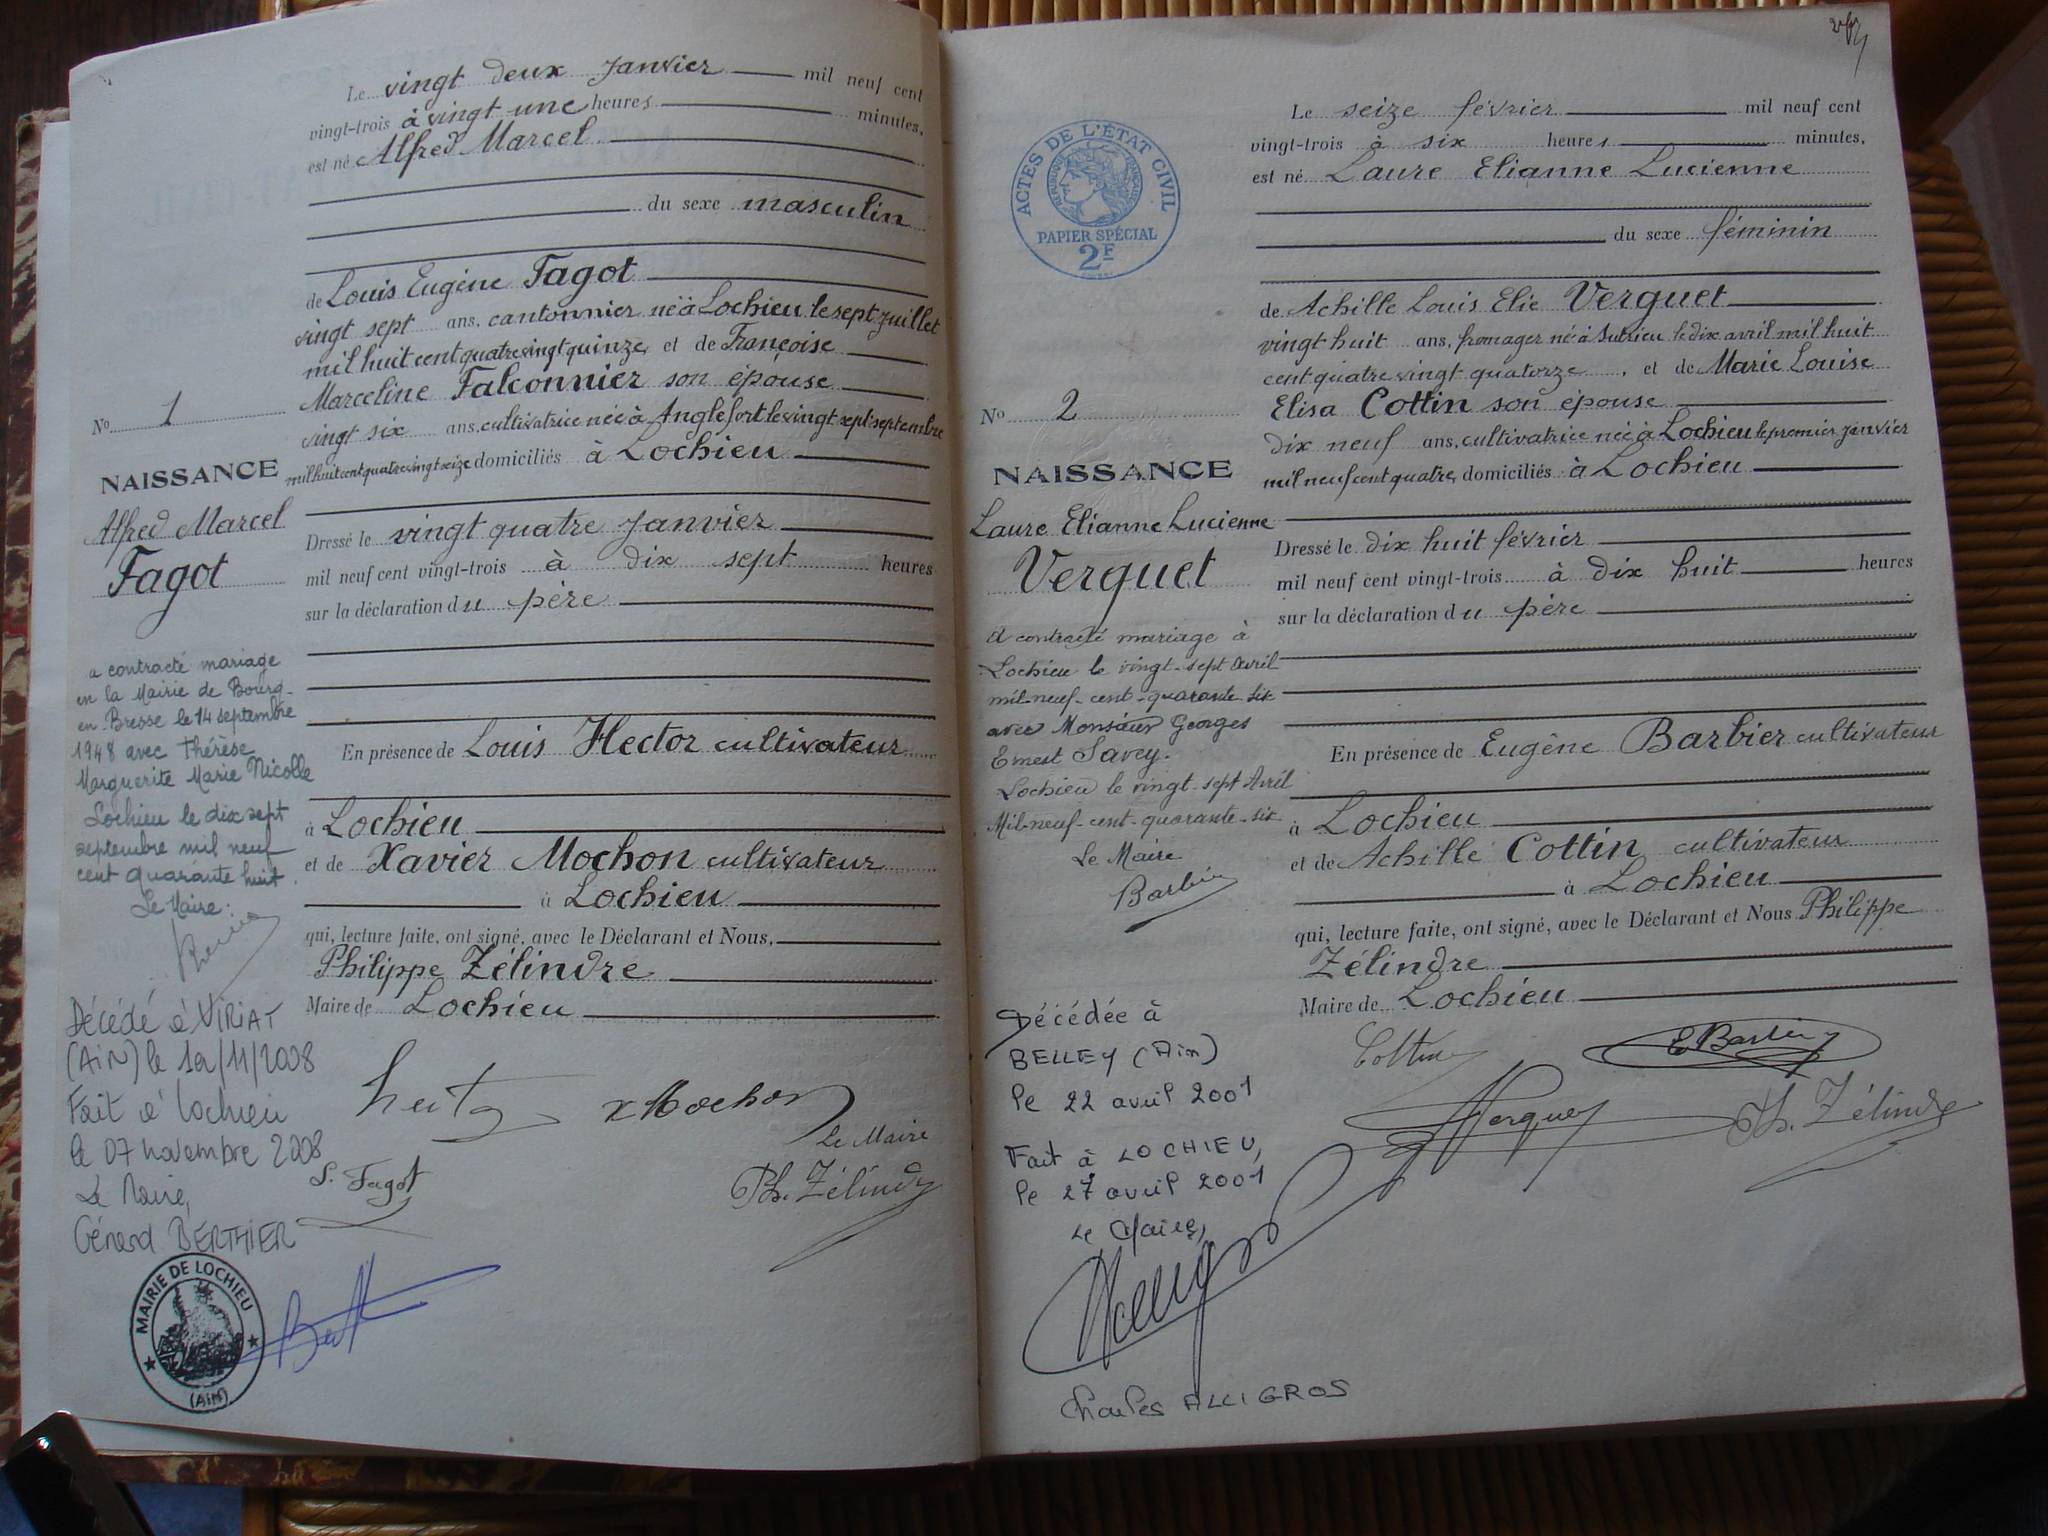 Le vingt deux janvier mil neuf cent
vingt-trois à vingt une heures minutes,
est né Alfred Marcel
du sexe masculin
de Louis Eugène Fagot
vingt sept ans, cantonnier né à Lochieu le sept juillet
mil huit cent quatre vingt quinze et de Françoise
Marceline Falconnier son épouse
vingt six ans, cultivatrice née à Anglefort le vingt sept septembre
mil huit cent quatre vingt seize domiciliés à Lochieu
Dressé le vingt quatre janvier
mil neuf cent vingt-trois à dix sept heures
sur la déclaration du père
En présence de Louis Hector cultivateur
à Lochieu
et de Xavier Mochon cultivateur
à Lochieu
qui, lecture faite, ont signé, avec le Déclarant et Nous,
Philippe Zélindre
Maire de Lochieu
X Mochon
Le Maire
L. Fagot
Ph. Zélindre
No 1
NAISSANCE
Alfred Marcel
Fagot
a contracté mariage
en la Mairie de Bourg-
en-Bresse le 14 septembre
1948 avec Thérèse
Marguerite Marie Nicolle
Lochieu le dix sept
septembre mil neuf
cent quarante huit.
Le Maire:
Décédé à VIRIAT
(AiN) le /11/2008
Fait à Lochieu
le 07 novembre 2008
Le Maire,
Gérard BERTHIER
MAIRIE DE LOCHIEU
(AIN)
Le seize février mil neuf cent
vingt-trois à six heures minutes,
est né Laure Elianne Lucienne
du sexe féminin
de Achille Louis Elie Verguet
vingt huit ans, fromager né à Sutrieu le dix avril mil huit
cent quatre vingt quatorze, et de Marie Louise
Elisa Cottin son épouse
dix neuf ans, cultivatrice née à Lochieu le premier janvier
mil neuf cent quatre domiciliés à Lochieu
Dressé le dix huit février
mil neuf cent vingt-trois à dix huit heures
sur la déclaration du père
En présence de Eugène Barbier cultivateur
à Lochieu
et de Achille Cottin cultivateur
à Lochieu
qui, lecture faite, ont signé, avec le Déclarant et Nous Philippe
Zélindre
Maire de Lochieu
Cottin E Barbier
Verguet Ph. Zélindre
ACTES DE L'ÉTAT CIVIL
RÉPUBLIQUE FRANÇAISE
PAPIER SPÉCIAL
2F
No 2
NAISSANCE
Laure Elianne Lucienne
Verguet
A contracté mariage à
Lochieu le vingt-sept Avril
mil-neuf-cent-quarante-six
avec Monsieur Georges
Ernest Savey.
Lochieu le vingt-sept Avril
Mil-neuf-cent-quarante-six
Le Maire
Barbier
Décédée à
BELLEY (Ain)
le 22 avril 2001
Fait à LOCHIEU,
le 27 avril 2001
Le Maire,
Charles ALLIGROS